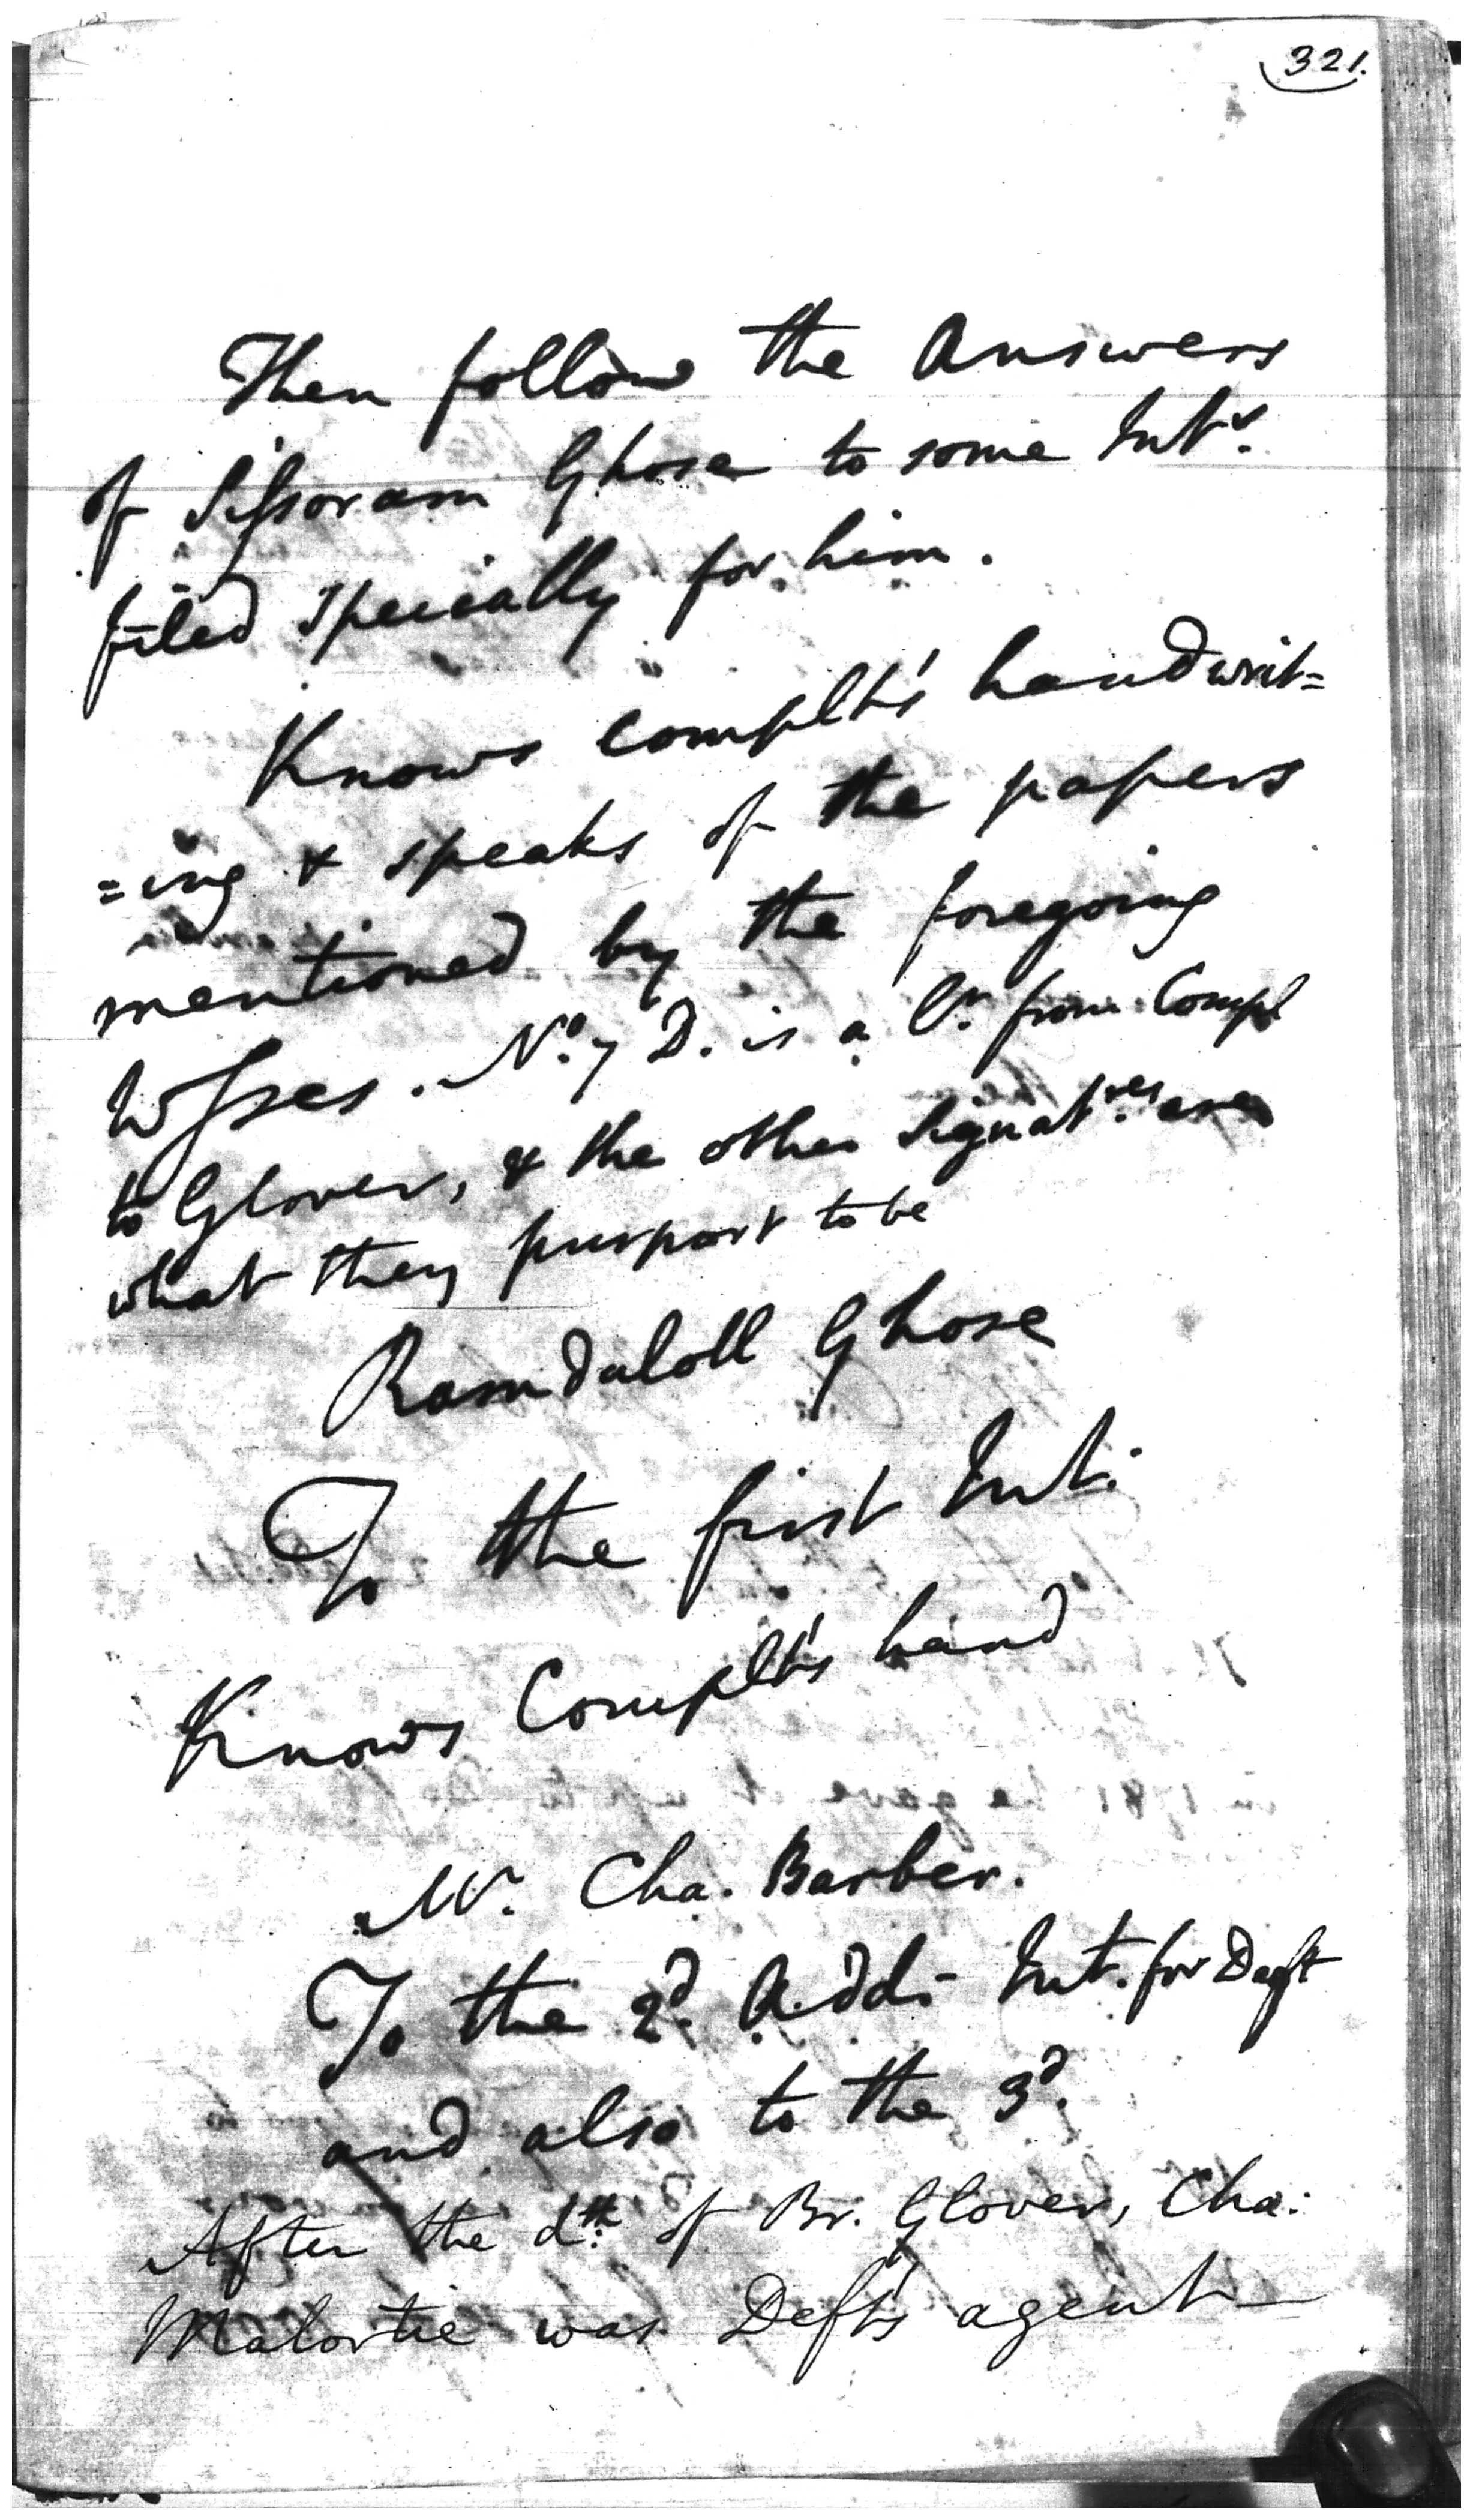 321.
Then follow the Answers
of Sissoram Ghose to some Intr.
filed specially for him.
Knows Complt's handwrit=
=ing & speaks of the papers
mentioned by the foregoing
Wsses. No. 7 D. is a Lr. from Compl
to Glover, & the other Signatres are
what they purport to be
Ramdaloll Ghose
To the first Int.
Knows Complt's hand
Mr. Cha. Barber.
To the 2d. Addl Int. for Deft
and also to the 3d.
After the dth. of Br. Glover, Cha:
Malortie was Deft's agent